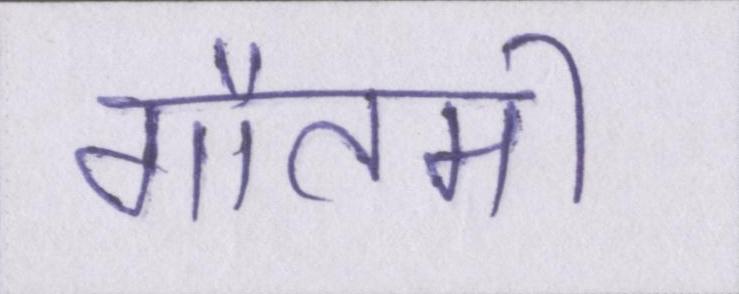 गौतमी